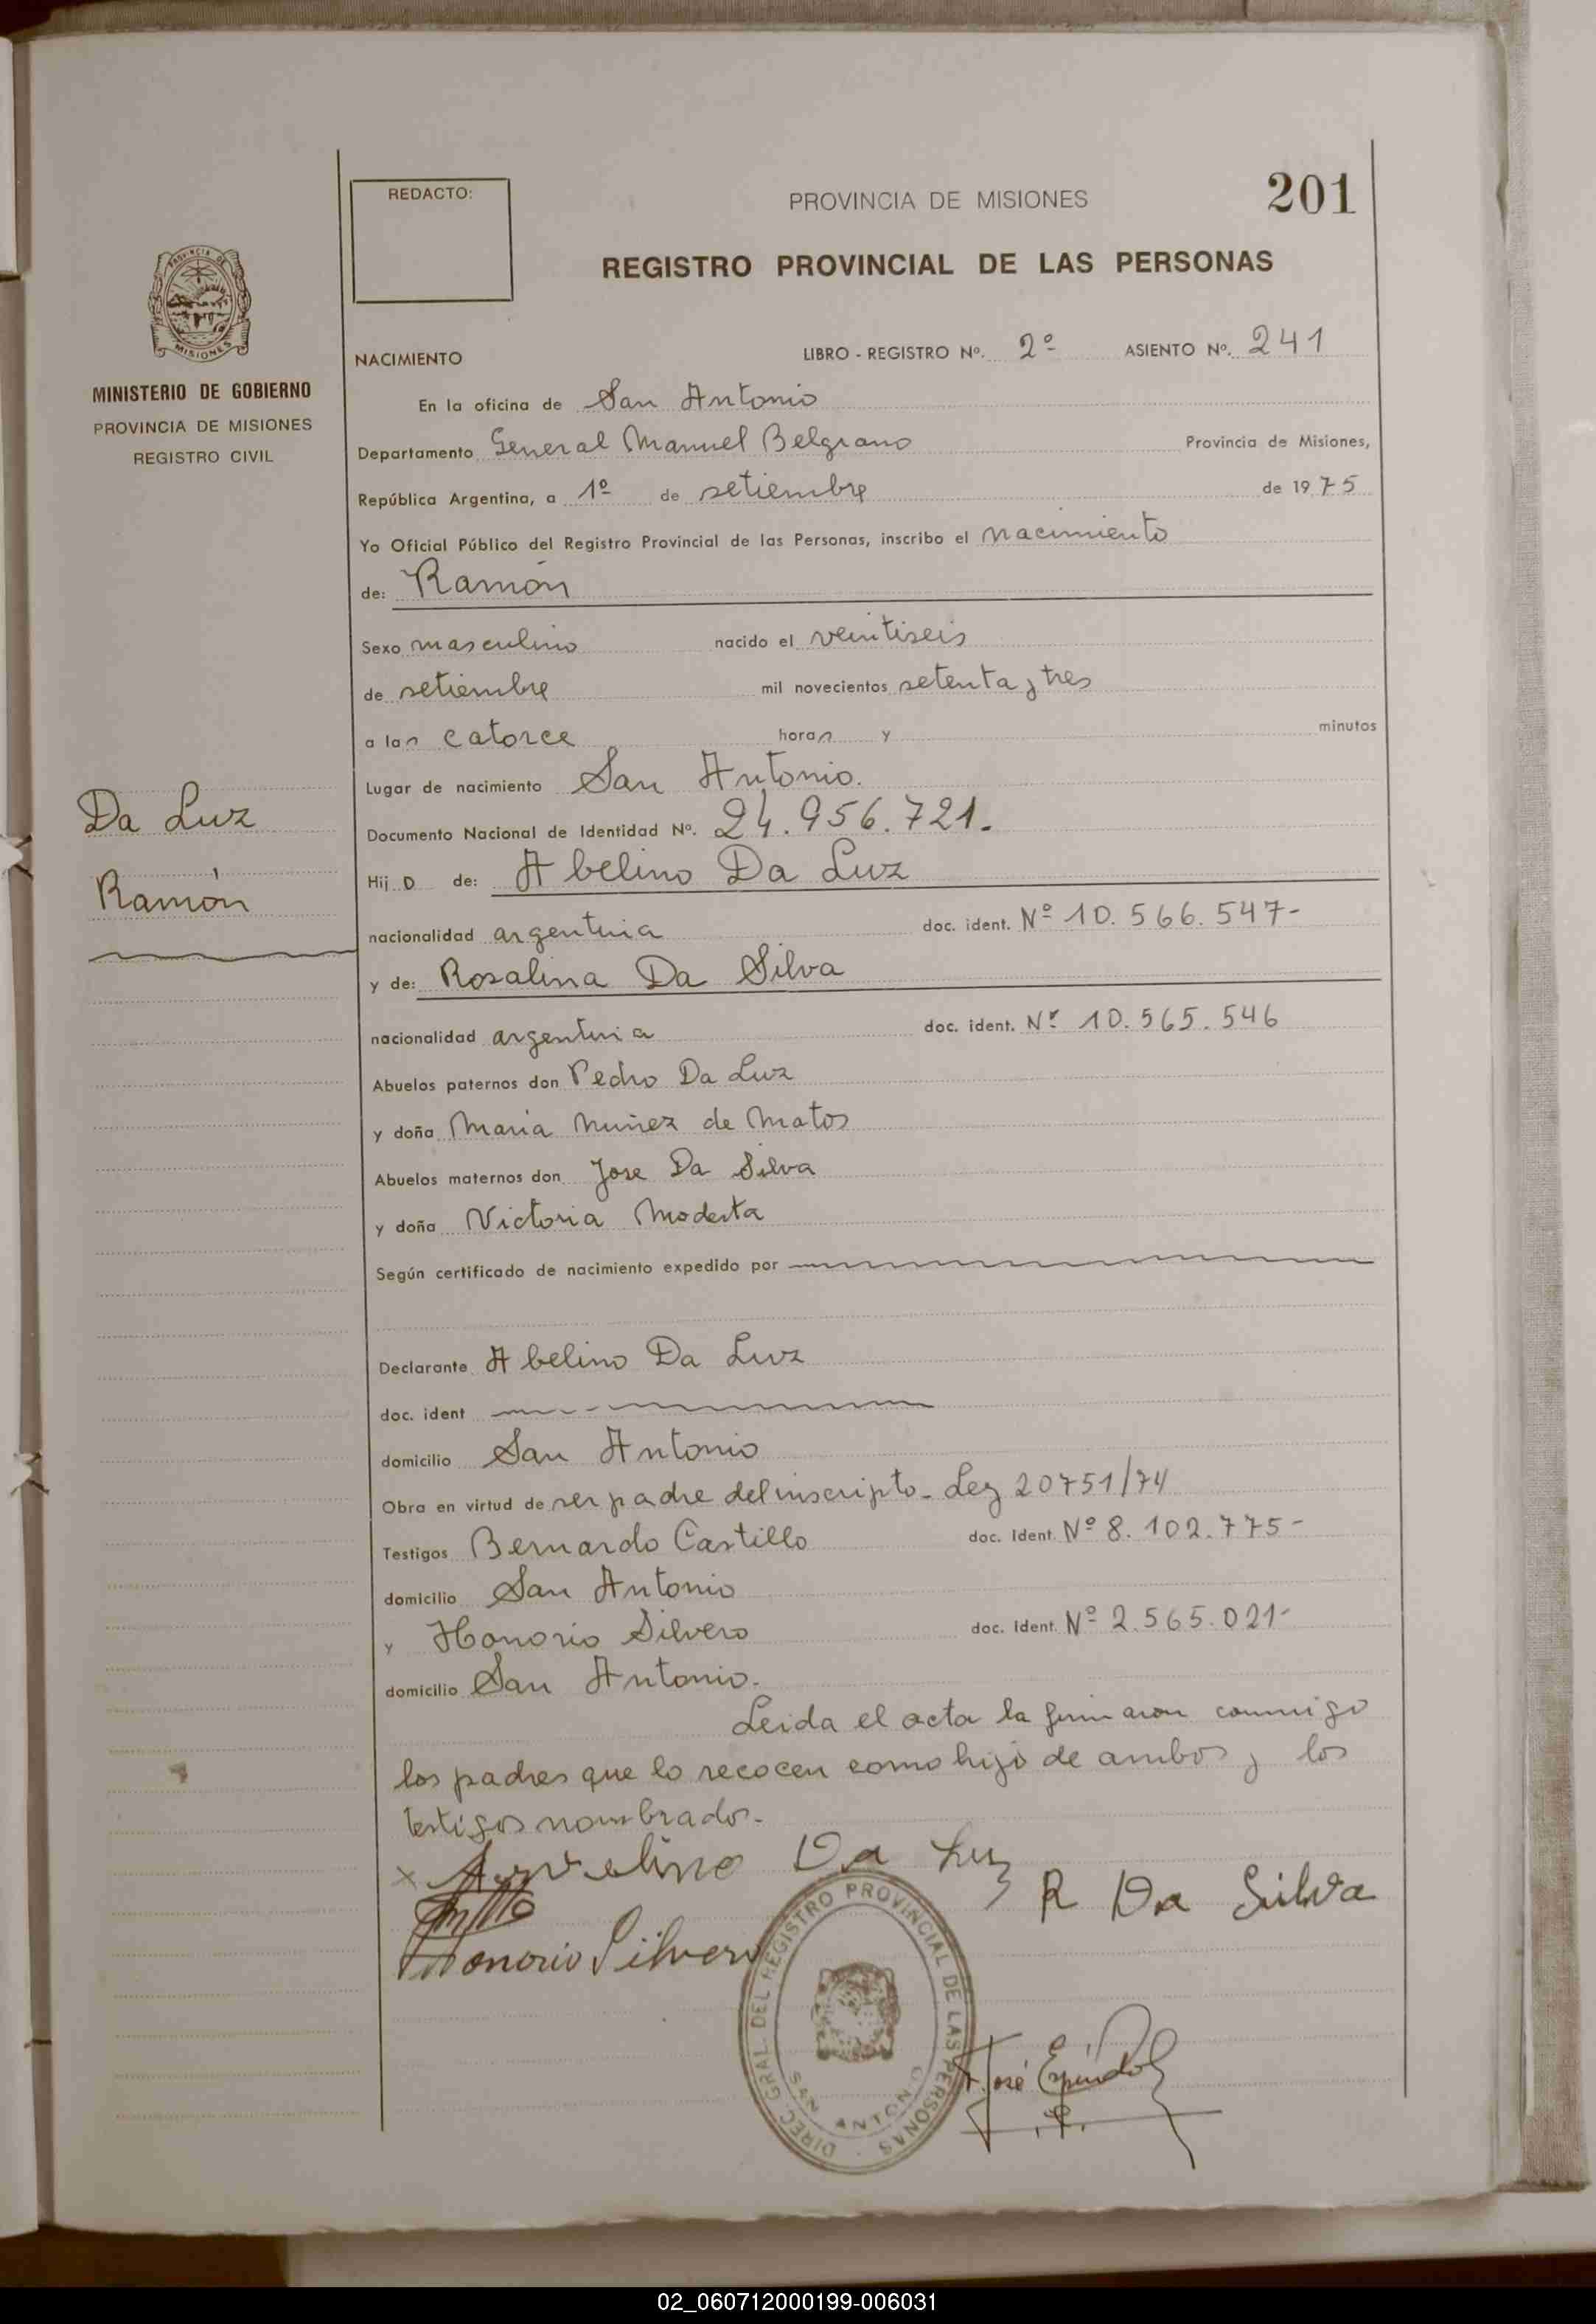 REDACTO:
PROVINCIA DE MISIONES
201
REGISTRO PROVINCIAL DE LAS PERSONAS
PROVINCIA DE
MISIONES
MINISTERIO DE GOBIERNO
PROVINCIA DE MISIONES
REGISTRO CIVIL
NACIMIENTO LIBRO - REGISTRO Nº. 2º ASIENTO Nº. 241
En la oficina de San Antonio
Departamento General Manuel Belgrano Provincia de Misiones,
República Argentina, a 1º de setiembre de 1975
Yo Oficial Público del Registro Provincial de las Personas, inscribo el nacimiento
de: Ramón
Sexo masculino nacido el veintiseis
de setiembre mil novecientos setenta y tres
a las catorce horas y minutos
Lugar de nacimiento San Antonio.
Da Luz
Ramón
Documento Nacional de Identidad Nº. 24.956.721.
Hijo de: Abelino Da Luz
nacionalidad argentina doc. ident. Nº 10.566.547-
y de: Rosalina Da Silva
nacionalidad argentina doc. ident. Nº 10.565.546
Abuelos paternos don Pedro Da Luz
y doña Maria Nuñez de Matos
Abuelos maternos don Jose Da Silva
y doña Victoria Modesta
Según certificado de nacimiento expedido por
Declarante Abelino Da Luz
doc. ident
domicilio San Antonio
Obra en virtud de ser padre del inscripto - Ley 20751/74
Testigos Bernardo Castillo doc. Ident. Nº 8.102.775-
domicilio San Antonio
y Honorio Silvero doc. Ident. Nº 2.565.021-
domicilio San Antonio.
Leida el acta la firmaron conmigo
los padres que lo recocen como hijo de ambos y los
testigos nombrados.-
x Da Luz
R Da Silva
Honorio Silvero
DIREC. GRAL. DEL REGISTRO PROVINCIAL DE LAS PERSONAS
SAN ANTONIO
José Espíndola
02_060712000199-006031